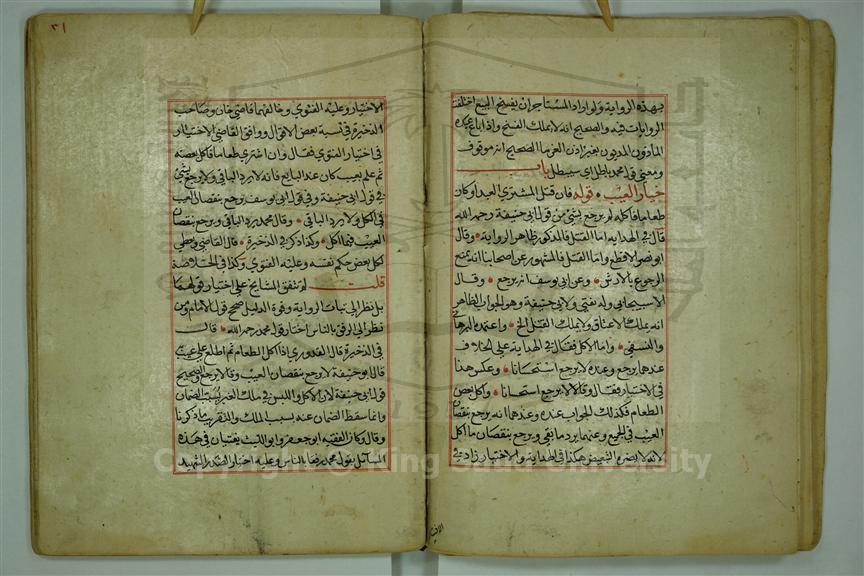 بهذه الرواية ولو اراد المستاجر ان يفسخ البيع اختلفت
الروايات فيه والصحيح انه لا يملك الفسخ واذا باع عبده
الماذون المديون بغير اذن الغرما الصحيح انه موقوف
ومعنى قول محمد باطل اي سيبطل باب
خيار العيب قوله فان قتل المشتري العبد او كان
طعاما فاكله لم يرجع بشئ من قول ابي حنيفة رحمه الله
قال في الهداية اما القتل فالمذكور ظاهر الرواية وقال
ابو نصر الاقطع واما القتل فالمشهور عن اصحابنا انه يمنع
الرجوع بالارش وعن ابي يوسف انه يرجع وقال
الاسبيجابي وله نفتي ولابي حنيفة وهو الجواب الظاهر
انه يملك الاعتاق ولا يملك القتل الخ واعتمده البرهاني
والنسفي واما الاكل فقال في الهداية على الخلاف
عندهما يرجع وعنده لا يرجع استحسانا وعكس هذا
في الاختيار فقال وقالا لا يرجع استحسانا واكل بعض
الطعام فكذلك الجواب عنده وعندهما انه يرجع بنقصان
العيب في الجميع وعنهما يرد ما بقي ويرجع بنقصان ما اكل
لانه لا يضره التبعيض هكذا في الهداية والاختيار زاد في
الاختيار
٣١
الاختيار وعليه الفتوي وخالفهما قاضي خان وصاحب
الذخيرة في نسبة بعض الاقوال ووافق القاضي الاختيار
في اختيار الفتوي فقال وان اشتري طعاما فاكل بعضه
ثم علم بعيب كان عند البايع فانه لا يرد الباقي ولا يرجع بشئ
في قول ابي حنيفة وفي قول ابي يوسف يرجع بنقصان العيب
في اكل ولا يرد الباقي وقال محمد يرد الباقي ويرجع بنقصان
العيب فيما اكل وكذا ذكر في الذخيرة قال القاضي ويعطي
لكل بعض حكم نفسه وعليه الفتوي وكذا في الخلاصة
قلت لم تتفق المشايخ على اختيار قولهما
بل نظر الى ثبات الرواية وقوة الدليل صحح قول الامام ومن
نظر الى الرفق بالناس اختار قول محمد رحمه الله قال
في الذخيرة قال القدوري اذا اكل الطعام ثم اطلع على عيب
قال ابو حنيفة لا يرجع بنقصان العيب وقالا يرجع والصحيح
قول ابي حنيفة لان الاكل واللبس في ملك الغير يثبت الضمان
وانما سقط الضمان عنه بسبب الملك والتقريب ما ذكرنا
وقال وكان الفقيه ابو جعفر وابو الليث يفتيان في هذه
المسائل بقول محمد رفقا بالناس وعليه اختيار الصدر الشهيد
Copyright © King Saud University